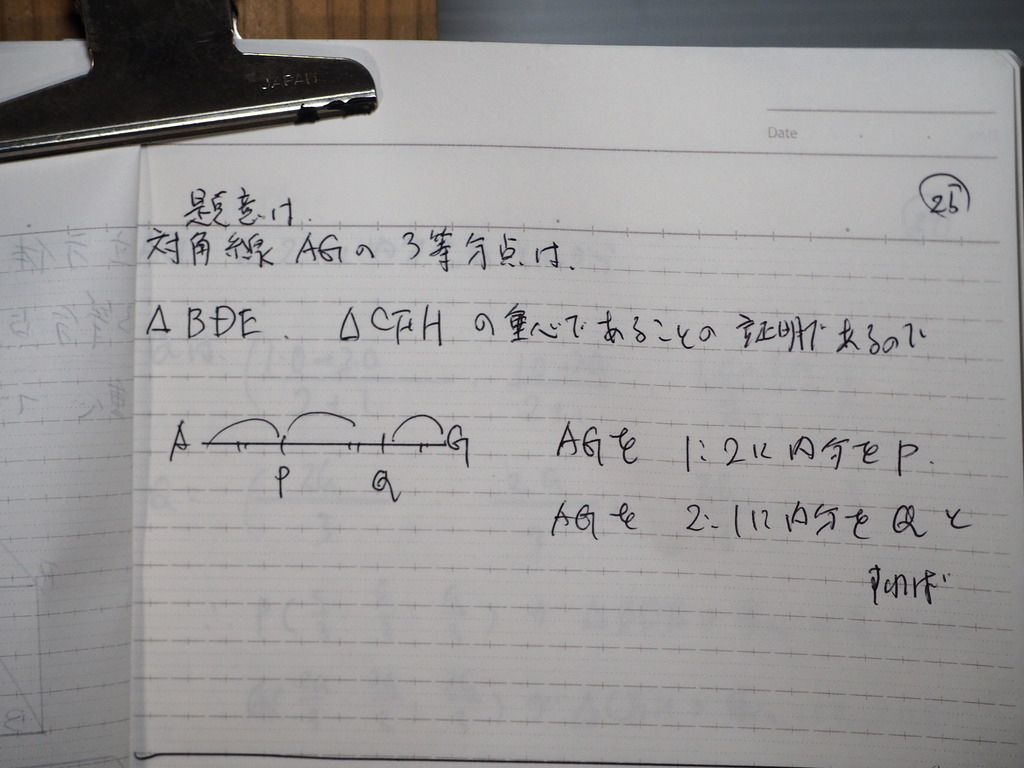 JAPAN
Date
25
題意は.
対角線 AGの 3等分点は.
△BDE. △CFHの重心であることの証明であるので
A P Q G
AGを 1:2に内分をP.
AGを 2:1に内分をQと
すれば